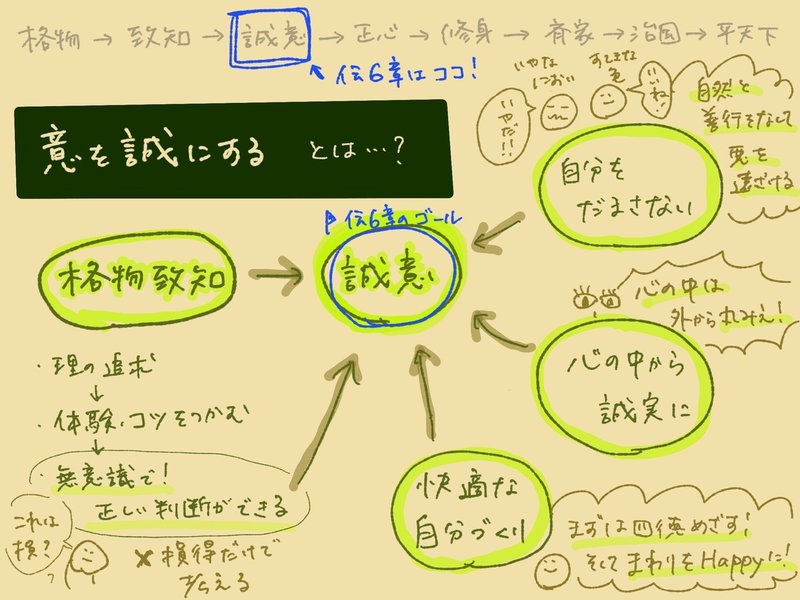 格物 → 致知 → 誠意 → 正心 → 修身 → 斉家 → 治国 → 平天下
伝6章はココ!
意を誠にする とは…?
いやな
におい
いやだ!!
すてきな
色
いいね!
自然と
善行をなして
悪を
遠ざける
自分を
だまさない
伝6章のゴール
格物致知
誠意
心の中は
外から丸みえ!
心の中から
誠実に
・理の追求
↓
・体験、コツをつかむ
↓
・無意識で!
正しい判断ができる
これは
損?
×損得だけで
払える
快適な
自分づくり
まずは四徳めざす!
そしてまわりをHappyに!